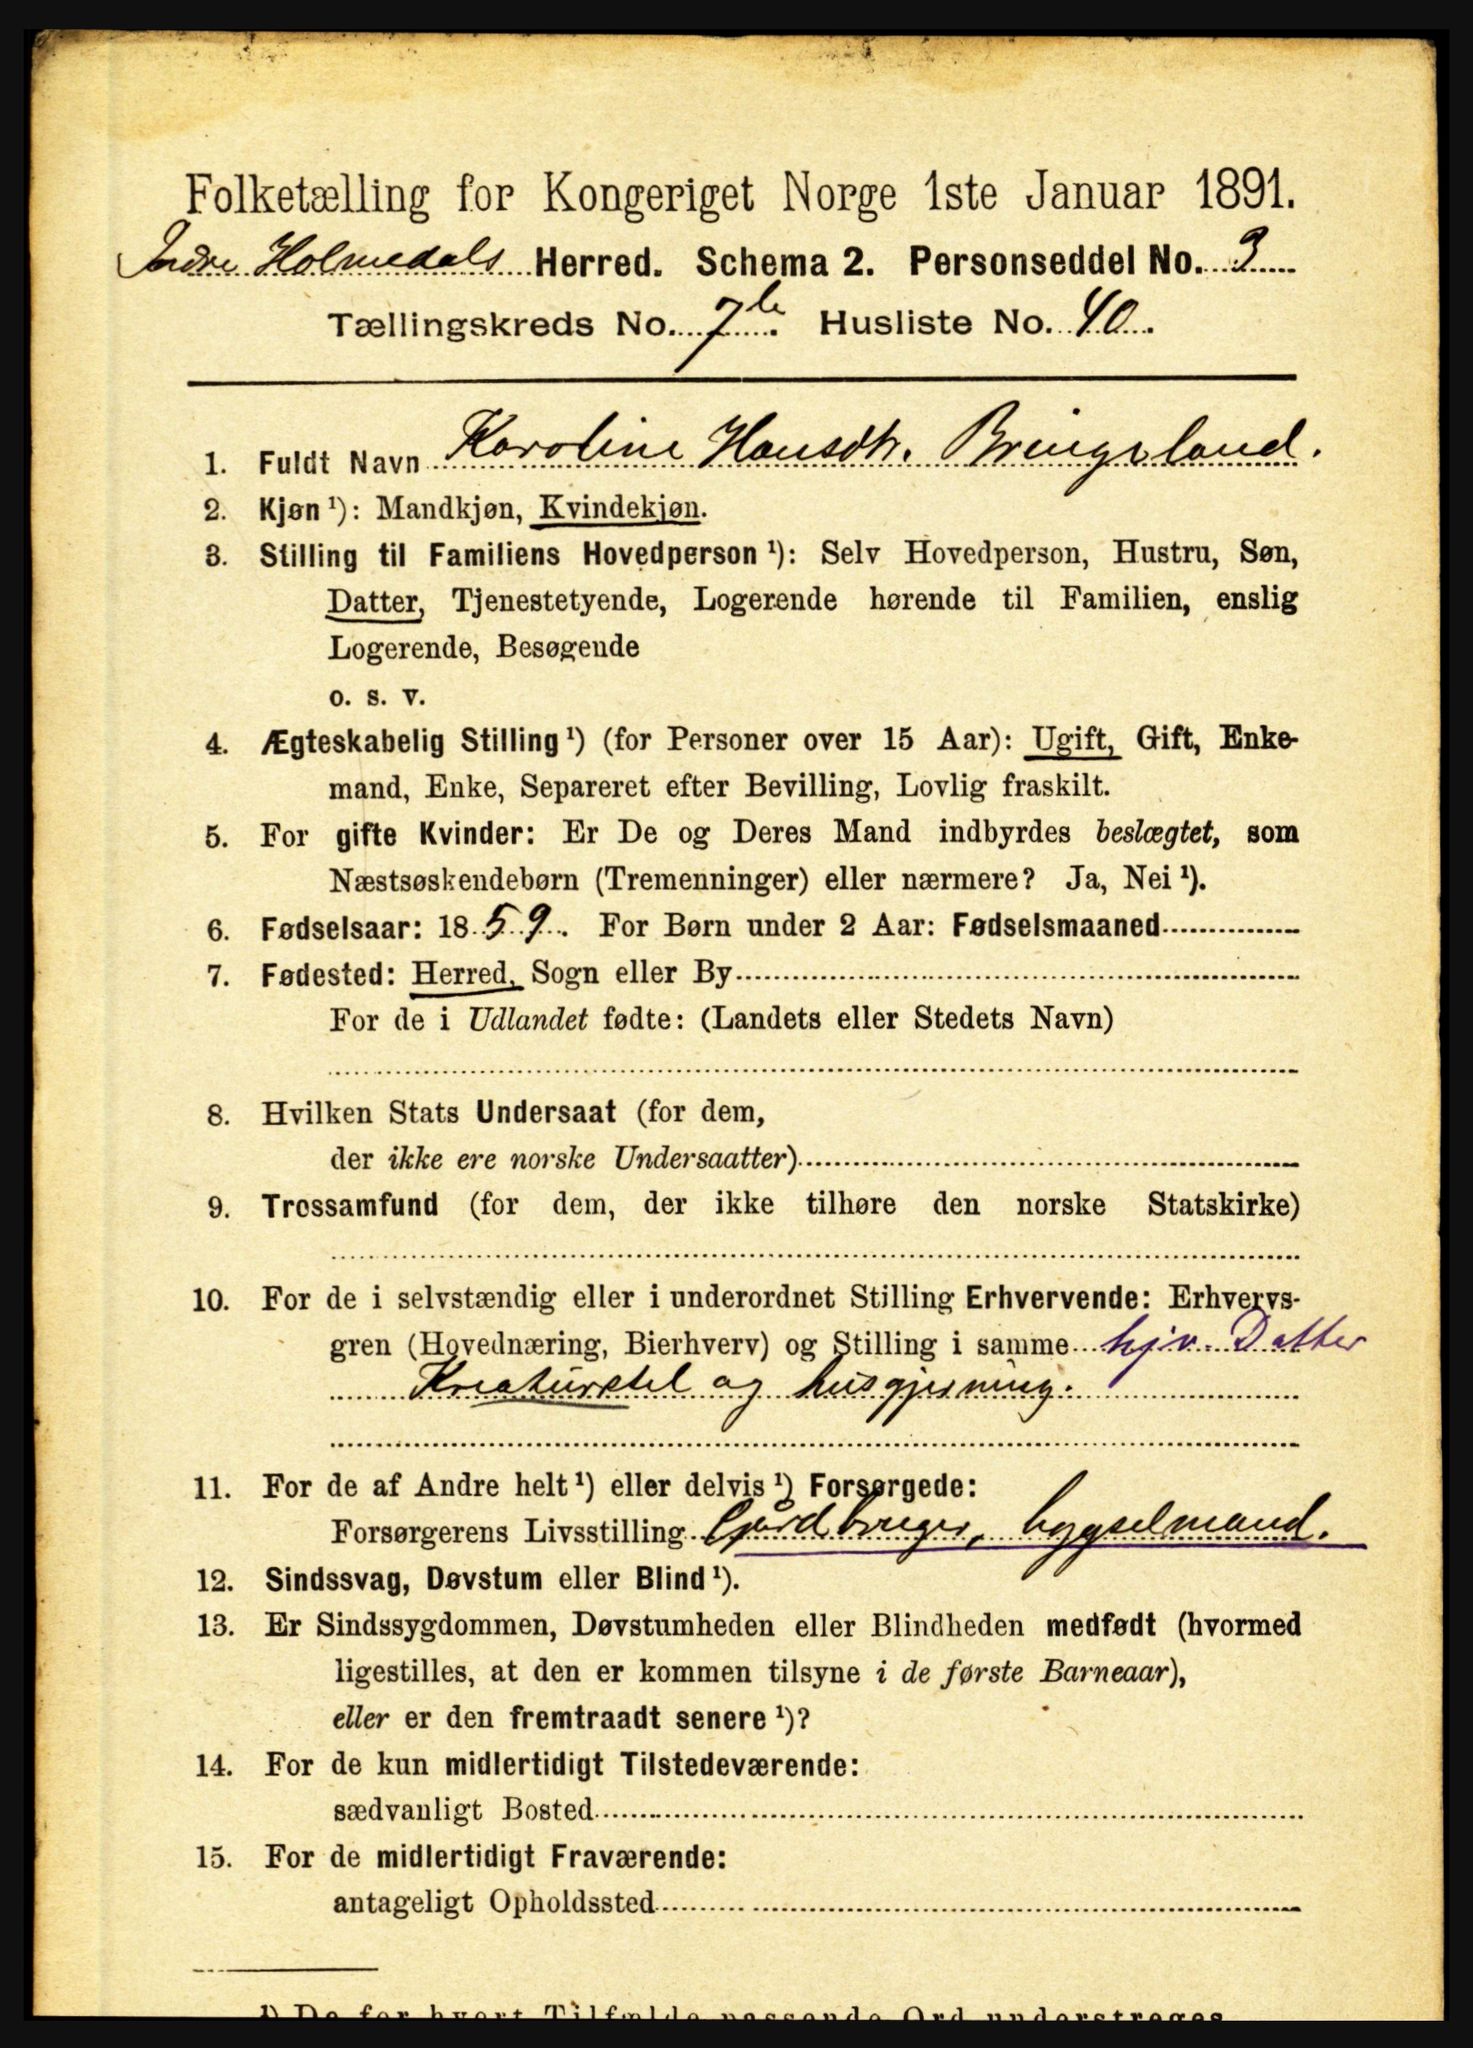 Folketælling for Kongeriget Norge 1ste Januar 1891.
Indre Holmedals Herred. Schema 2. Personseddel No. 3
Tællingskreds No. 7b. Husliste No. 40.
1. Fuldt Navn Karoline Hansdtr. Bringsland.
2. Kjøn ¹): Mandkjøn, Kvindekjøn.
3. Stilling til Familiens Hovedperson ¹): Selv Hovedperson, Hustru, Søn,
Datter, Tjenestetyende, Logerende hørende til Familien, enslig
Logerende, Besøgende
o. s. v.
4. Ægteskabelig Stilling ¹) (for Personer over 15 Aar): Ugift, Gift, Enke-
mand, Enke, Separeret efter Bevilling, Lovlig fraskilt.
5. For gifte Kvinder: Er De og Deres Mand indbyrdes beslægtet, som
Næstsøskendebørn (Tremenninger) eller nærmere? Ja, Nei ¹).
6. Fødselsaar: 1859. For Børn under 2 Aar: Fødselsmaaned
7. Fødested: Herred, Sogn eller By
For de i Udlandet fødte: (Landets eller Stedets Navn)
8. Hvilken Stats Undersaat (for dem,
der ikke ere norske Undersaatter)
9. Trossamfund (for dem, der ikke tilhøre den norske Statskirke)
10. For de i selvstændig eller i underordnet Stilling Erhvervende: Erhvervs-
gren (Hovednæring, Bierhverv) og Stilling i samme hjv. Datter
Kreaturstel og husgjerning.
11. For de af Andre helt ¹) eller delvis ¹) Forsørgede:
Forsørgerens Livsstilling Gårdbruger, bygselmand.
12. Sindssvag, Døvstum eller Blind ¹).
13. Er Sindssygdommen, Døvstumheden eller Blindheden medfødt (hvormed
ligestilles, at den er kommen tilsyne i de første Barneaar),
eller er den fremtraadt senere ¹)?
14. For de kun midlertidigt Tilstedeværende:
sædvanligt Bosted
15. For de midlertidigt Fraværende:
antageligt Opholdssted
¹) De for hvert Tilfælde passende Ord understreges